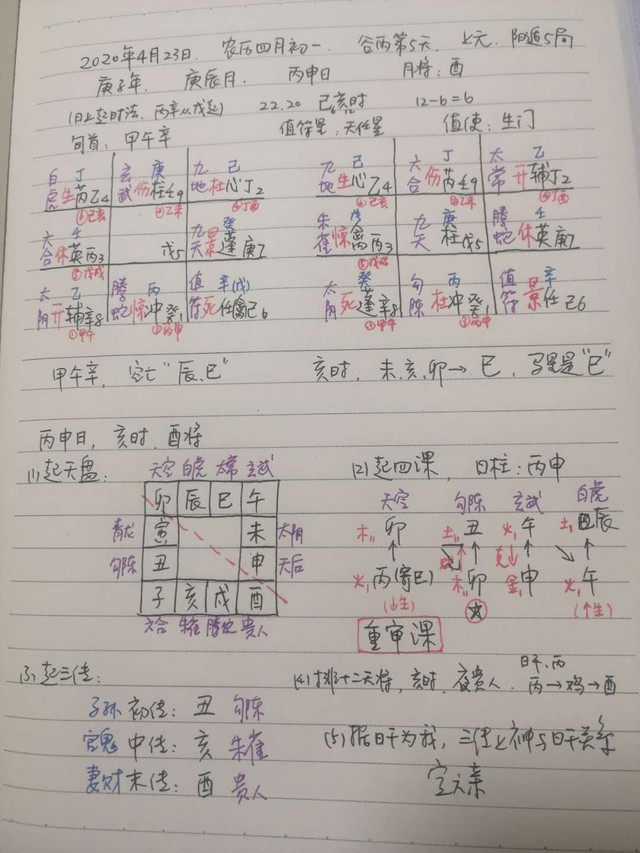 2020年4月23日. 农历四月初一. 谷雨第5天. 上元. 阳遁5局
庚子年. 庚辰月. 丙申日 月将:酉
(日上起时法,丙辛从戊起) 22.20 己亥时 12-6=6
旬首:甲午辛 值符星:天任星 值使:生门
白虎 丁 生芮乙4 ⑥己亥 玄武 庚 伤柱壬9 ②乙未 九地 己 杜心丁2 ④丁酉
九地 己 生心乙4 ⑥己亥 六合 丁 伤芮壬9 ②乙未 太常 乙 开辅丁2 ④丁酉
六合 壬 休英丙3 ⑤戊戌 戊5 九天 癸 景蓬庚7
朱雀 戊 惊禽丙3 ⑤戊戌 九天 庚 柱戊5 腾蛇 壬 休英庚7
太阴 乙 开辅辛8 ①甲午 腾蛇 丙 惊冲癸1 ③丙申 值符 辛(戊) 死任禽己6
太阴 癸 死蓬辛8 ①甲午 勾陈 丙 杜冲癸1 ③丙申 值符 辛 景任己6
甲午辛,空亡"辰、巳" 亥时,未、亥、卯→巳,马星是"巳"
丙申日,亥时.酉将
(1)起天盘: 天空 白虎 太常 玄武
卯 辰 巳 午
青龙 寅 未 太阴
勾陈 丑 申 天后
子 亥 戌 酉
六合 朱雀 腾蛇 贵人
(2)起四课, 日柱:丙申
天空 勾陈 玄武 白虎
木 卯 土 丑 火 午 土 辰
↑ ↑ 克 ↑ ↑
火 丙(寄巳) 木 卯 金 申 火 午
(↓生) ☆ (↑生)
重审课
(3)起三传:
子孙 初传:丑 勾陈
官鬼 中传:亥 朱雀
妻财 末传:酉 贵人
(4)排十二天将,亥时.夜贵人. 日干.丙 丙→鸡→酉
(5)据日干为我,三传上神与日干关系
定六亲